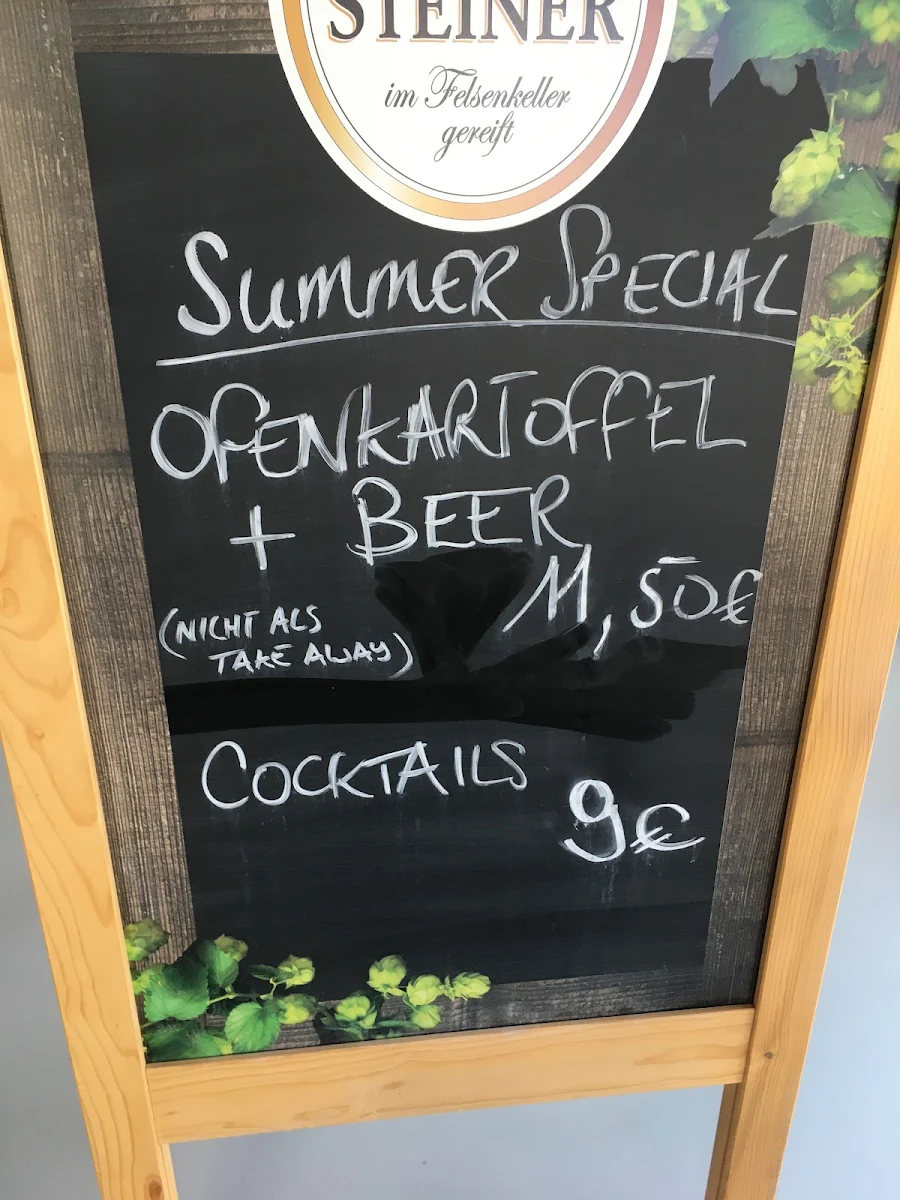 STEINER
im Felsenkeller
gereift
SUMMER SPECIAL
OFENKARTOFFEL
+ BEER
11,50€
(NICHT ALS
TAKE AWAY)
COCKTAILS
9€